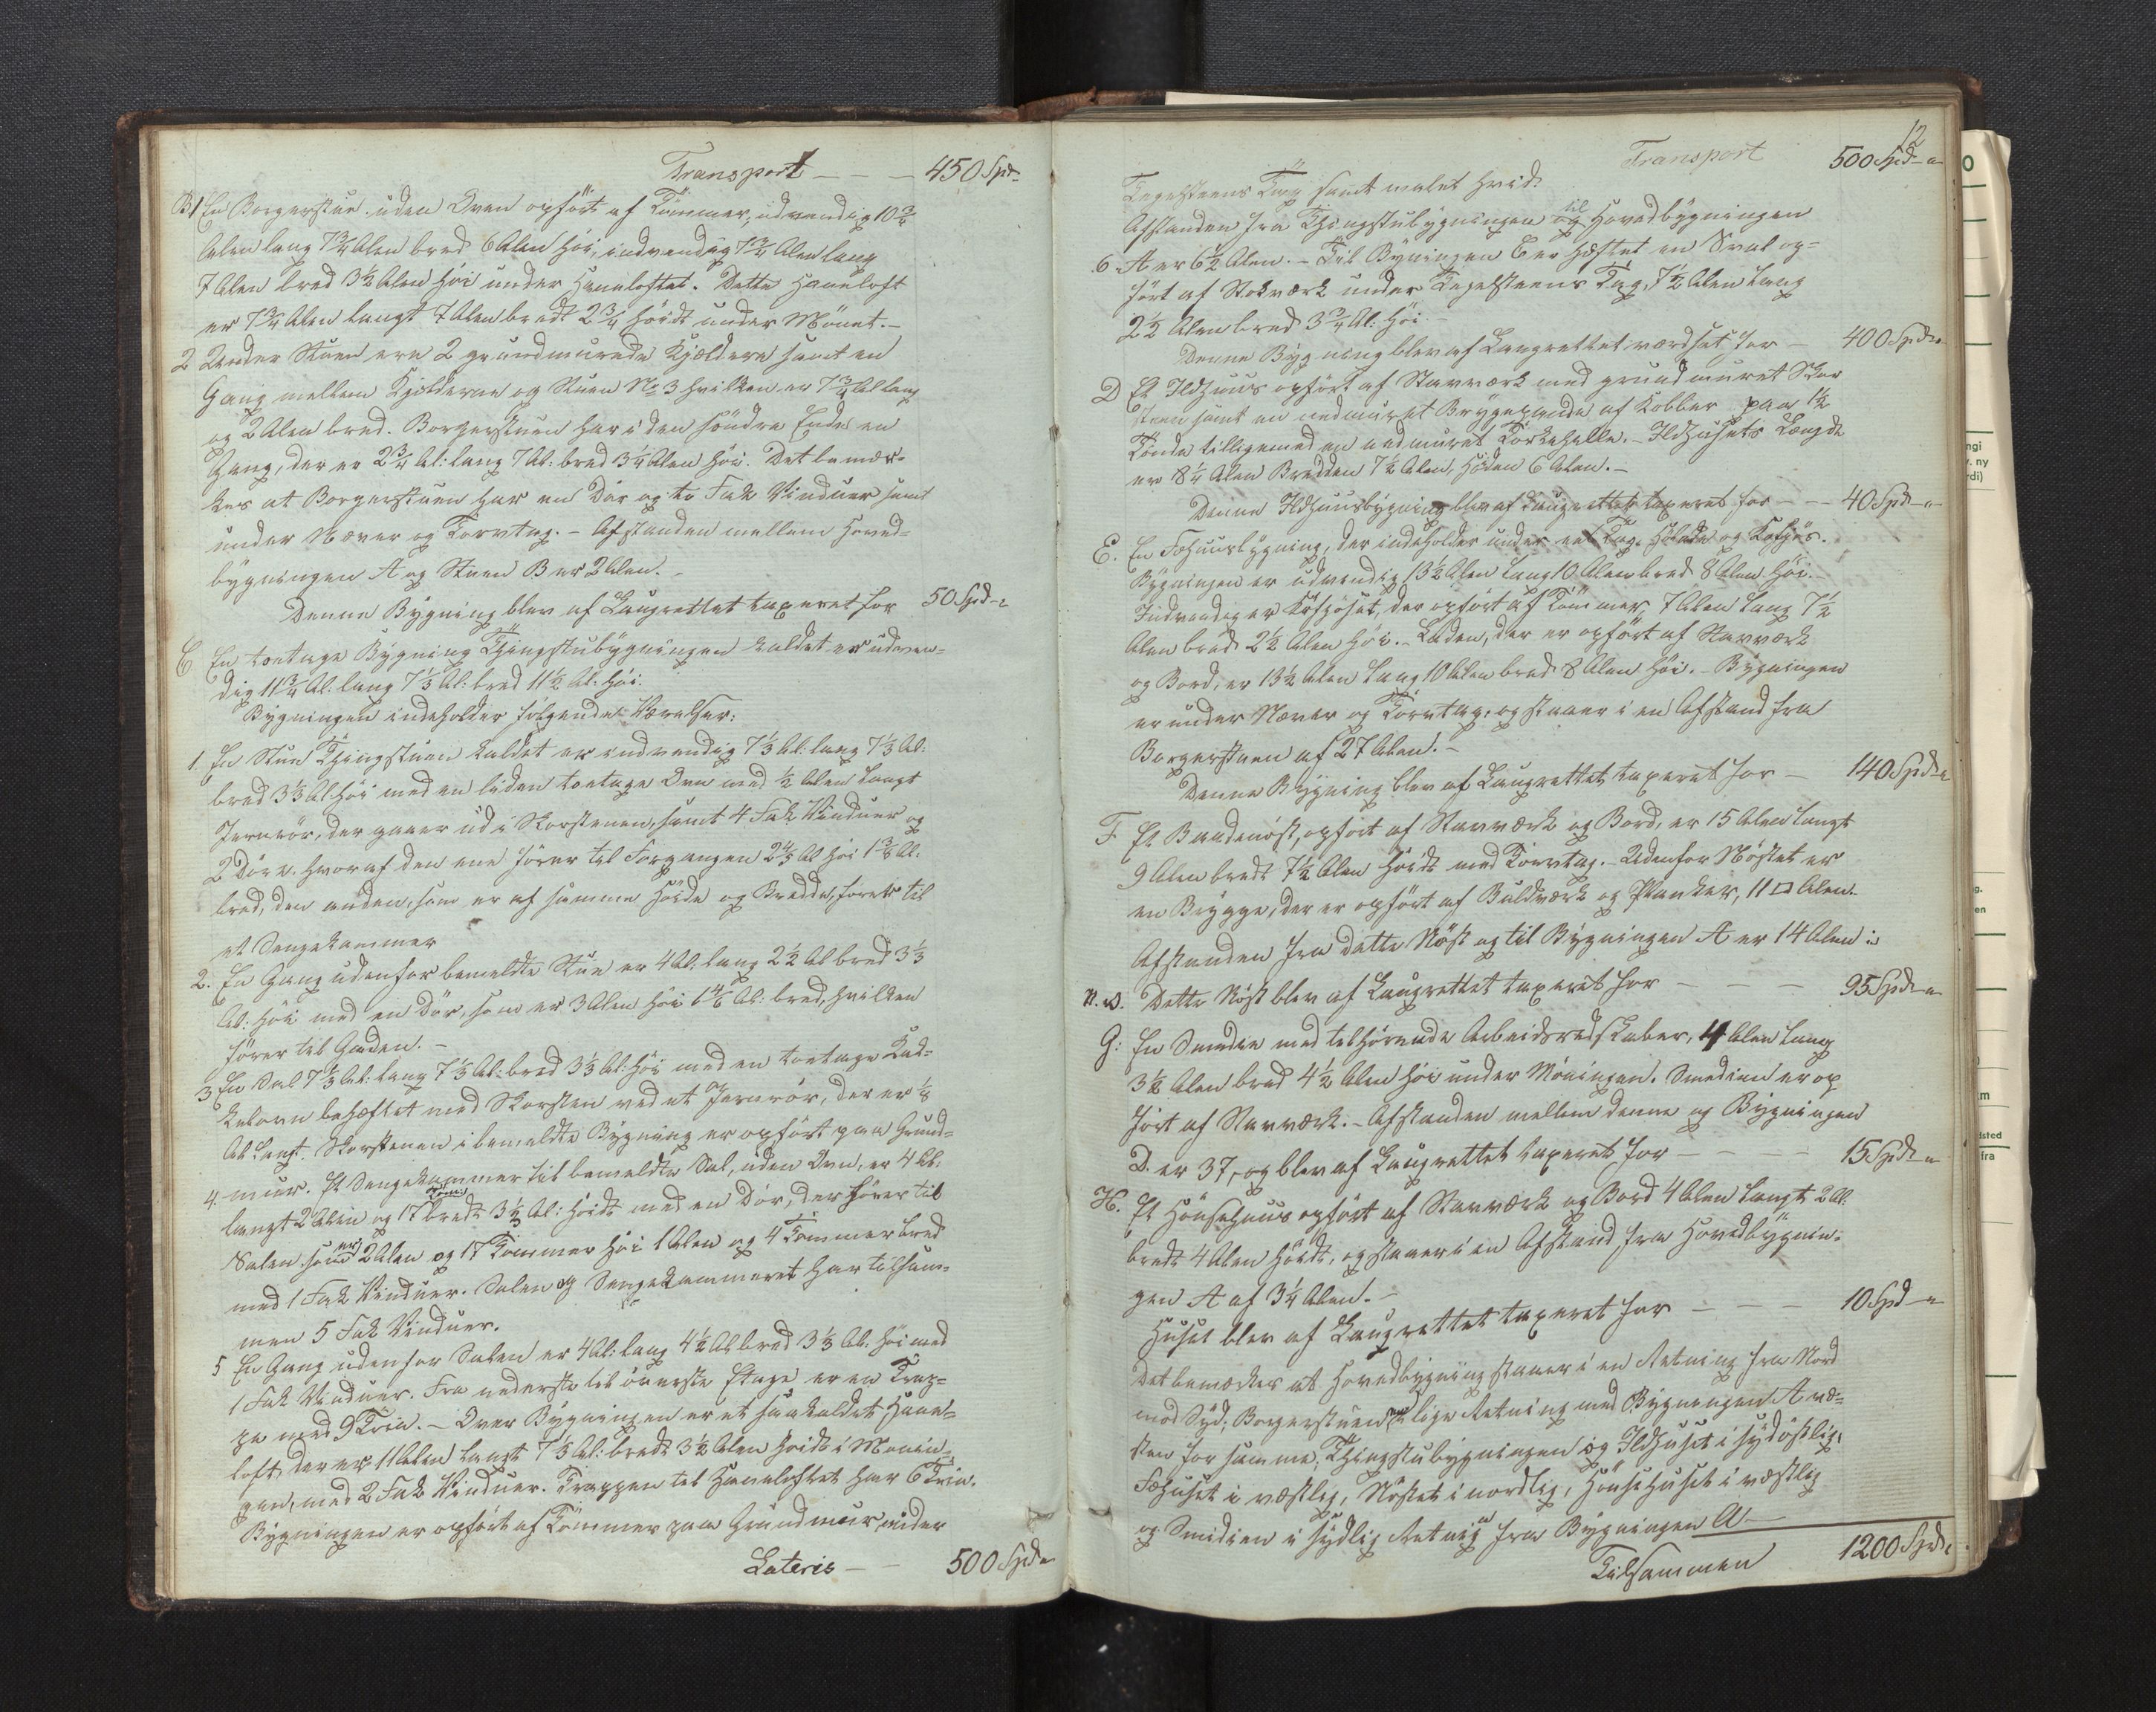 Transport — — — 450 Spd -
B.1 En Borgerstue uden Oven opfört af Tömmer, udvendig 10 3/4
Alen lang 7 3/4 Alen bred 6 Alen höi, indvendig 7 3/4 Alen lang
7 Alen bred 3 1/2 Alen höi under Haneloftet. Dette Haneloft
er 7 3/4 Alen langt 7 Alen bredt 2 3/4 höidt under Mönet. -
2 Under Stuen ere 2 grundmurede Kjældere samt en
Gang mellem Kjelderne og Stuen No 3 hvilken er 7 3/4 Al lang
og 2 Alen bred. Borgerstuen har i den söndre Ende en
Gang, der er 2 3/4 Al: lang 7 Al: bred 3 1/4 Alen höi. Det bemær-
kes at Borgerstuen har en Dör og to Fak Vinduer samt
under Næver og Torvtag. - Afstanden mellem Hoved-
bygningen A og Stuen B er 2 Alen. -
Denne Bygning blev af Laugrettet taxeret for 50 Spd - "
C En toetage Bygning Thingstubygningen kaldet er udven-
dig 11 3/4 Al: lang 7 1/3 Al: bred 11 1/2 Al. höi.
Bygningen indeholder fölgende Værelser:
1. En Stue Thingstuen kaldet er indvendig 7 1/3 Al: lang 7 1/3 Al:
bred 3 1/3 Al höi med en liden toetage Oven med 1/2 Alen langt
Jernrör, der gaaer ud i Skorstenen, samt 4 Fak Vinduer og
2 Döre. hvoraf den ene förer til Forgangen 2 4/5 Al höi 1 3/8 Al.
bred, den anden, som er af samme Höide og Bredde, förer til
et Sengekammer
2. En Gang udenfor bemeldte Stue er 4 Al: lang 2 1/2 Al bred 3 1/3
Al: höi med en Dör, som er 3 Alen höi 1 4/6 Al: bred, hvilken
förer til Gaden. -
3 En Sal 7 1/3 Al: lang 7 1/3 Al: bred 3 1/3 Al: höi med en toetage Kak-
kelovn behæftet med Skorsten ved et Jernrör, der er 1/8
Al langt. Skorstenen i bemeldte Bygning er opfört paa Grund-
4. mur. Et Sengekammer til bemeldte Sal, uden Oven, er 4 Al.
langt 2 Alen og 17 Tomr bredt 3 1/2 Al: höidt med en Dör, der förer til
Salen som er 2 Alen og 17 Tommer höi 1 Alen og 4 Tommer bred
med 1 Fak Vinduer. Salen og Sengekammeret har tilsam-
men 5 Fak Vinduer.
5 En Gang udenfor Salen er 4 Al: lang 4 1/2 Al bred 3 1/3 Al. höi med
1 Fak Vinduer. Fra nederste til överste Etage er en Trap-
pe med 9 Trin. - Over Bygningen er et saakaldet Hane-
loft, der er 11 Alen langt 7 1/3 Al: bredt 3 1/2 Alen höidt i Mönin-
gen, med 2 Fak Vinduer. Trappen til Haneloftet har 6 Trin.
Bygningen er opfört af Tömmer paa Grundmur, under
Lateris — — 500 Spd "
12
Transport 500 Spd - "
Tegelsteens Tag samt malet hvid.
Afstanden fra Thingstubygningen til Hovedbygningen
6 A er 6 1/2 Alen. - Til Bygningen C er hæftet en Sval op-
fört af Stokværk under Tegelsteens Tag, 7 1/2 Alen lang
2 1/2 Alen bred 3 3/4 Al: höi.
Denne Bygning blev af Laugrettet værdsat for — 400 Spd "
D Et Ildhuus opfört af Stavværk med grundmuret Skor
steen samt en nedmuret Bryggepande af Kobber paa 1 1/2
Tönde tilligemed en nedmuret Törkehelle. - Ildhusets Længde
er 8 1/4 Alen Bredden 7 1/2 Alen, Höiden 6 Alen. -
Denne Ildhuusbygning blev af Laugrettet taxeret for — — 40 Spd - "
E. En Föhuusbygning, der indeholder under eet Tag, Hölade og Kofjös.
Bygningen er udvendig 13 1/2 Alen lang 10 Alen bred 8 Alen höi. -
Indvendig er Kofjöset, der opfört af Tömmer, 7 Alen lang 7 1/2
Alen bred 2 1/2 Alen höi. - Laden, der er opfört af Stavværk
og Bord, er 13 1/2 Alen lang 10 Alen bred 8 Alen höi. - Bygningen
er under Næver og Torvtag, og staaer i en Afstand fra
Borgerstuen af 27 Alen. -
Denne Bygning blev af Laugrettet taxeret for — 140 Spd "
F Et Baadenöst, opfört af Stavværk og Bord, er 15 Alen langt
9 Alen bredt 7 1/2 Alen höidt med Torvtag. - Udenfor Nöstet er
en Brygge, der er opfört af Buldværk og Planker, 11 □ Alen.
Afstanden fra dette Nöst og til Bygningen A er 14 Alen i
N. V. Dette Nöst blev af Laugrettet taxeret for — — — 95 Spd - "
G: En Smedie med tilhörende Arbeidsredskaber, 4 Alen lang
3 1/2 Alen bred 4 1/2 Alen höi under Möningen. Smedien er op
fört af Stavværk. - Afstanden mellem denne og Bygningen
D. er 37, og blev af Laugrettet taxeret for — — — 15 Spd - "
H. Et Hönsehuus opfört af Stavværk og Bord 4 Alen langt 2 Al.
bredt 4 Alen höidt, og staaer i en Afstand fra Hovedbygnin-
gen A af 3 1/4 Alen. -
Huset blev af Laugrettet taxeret for — — — 10 Spd - "
Det bemærkes at Hovedbygning staaer i en Retning fra Nord
mod Syd; Borgerstuen lige Retning med Bygningen A væ-
sten for samme, Thingstubygningen og Ildhuset i sydöstlig,
Föhuset i væstlig, Nöstet i nordlig, Hönsehuset i væstlig
og Smidien i sydlig Retning fra Bygningen A —
Tilsammen 1200 Spd "